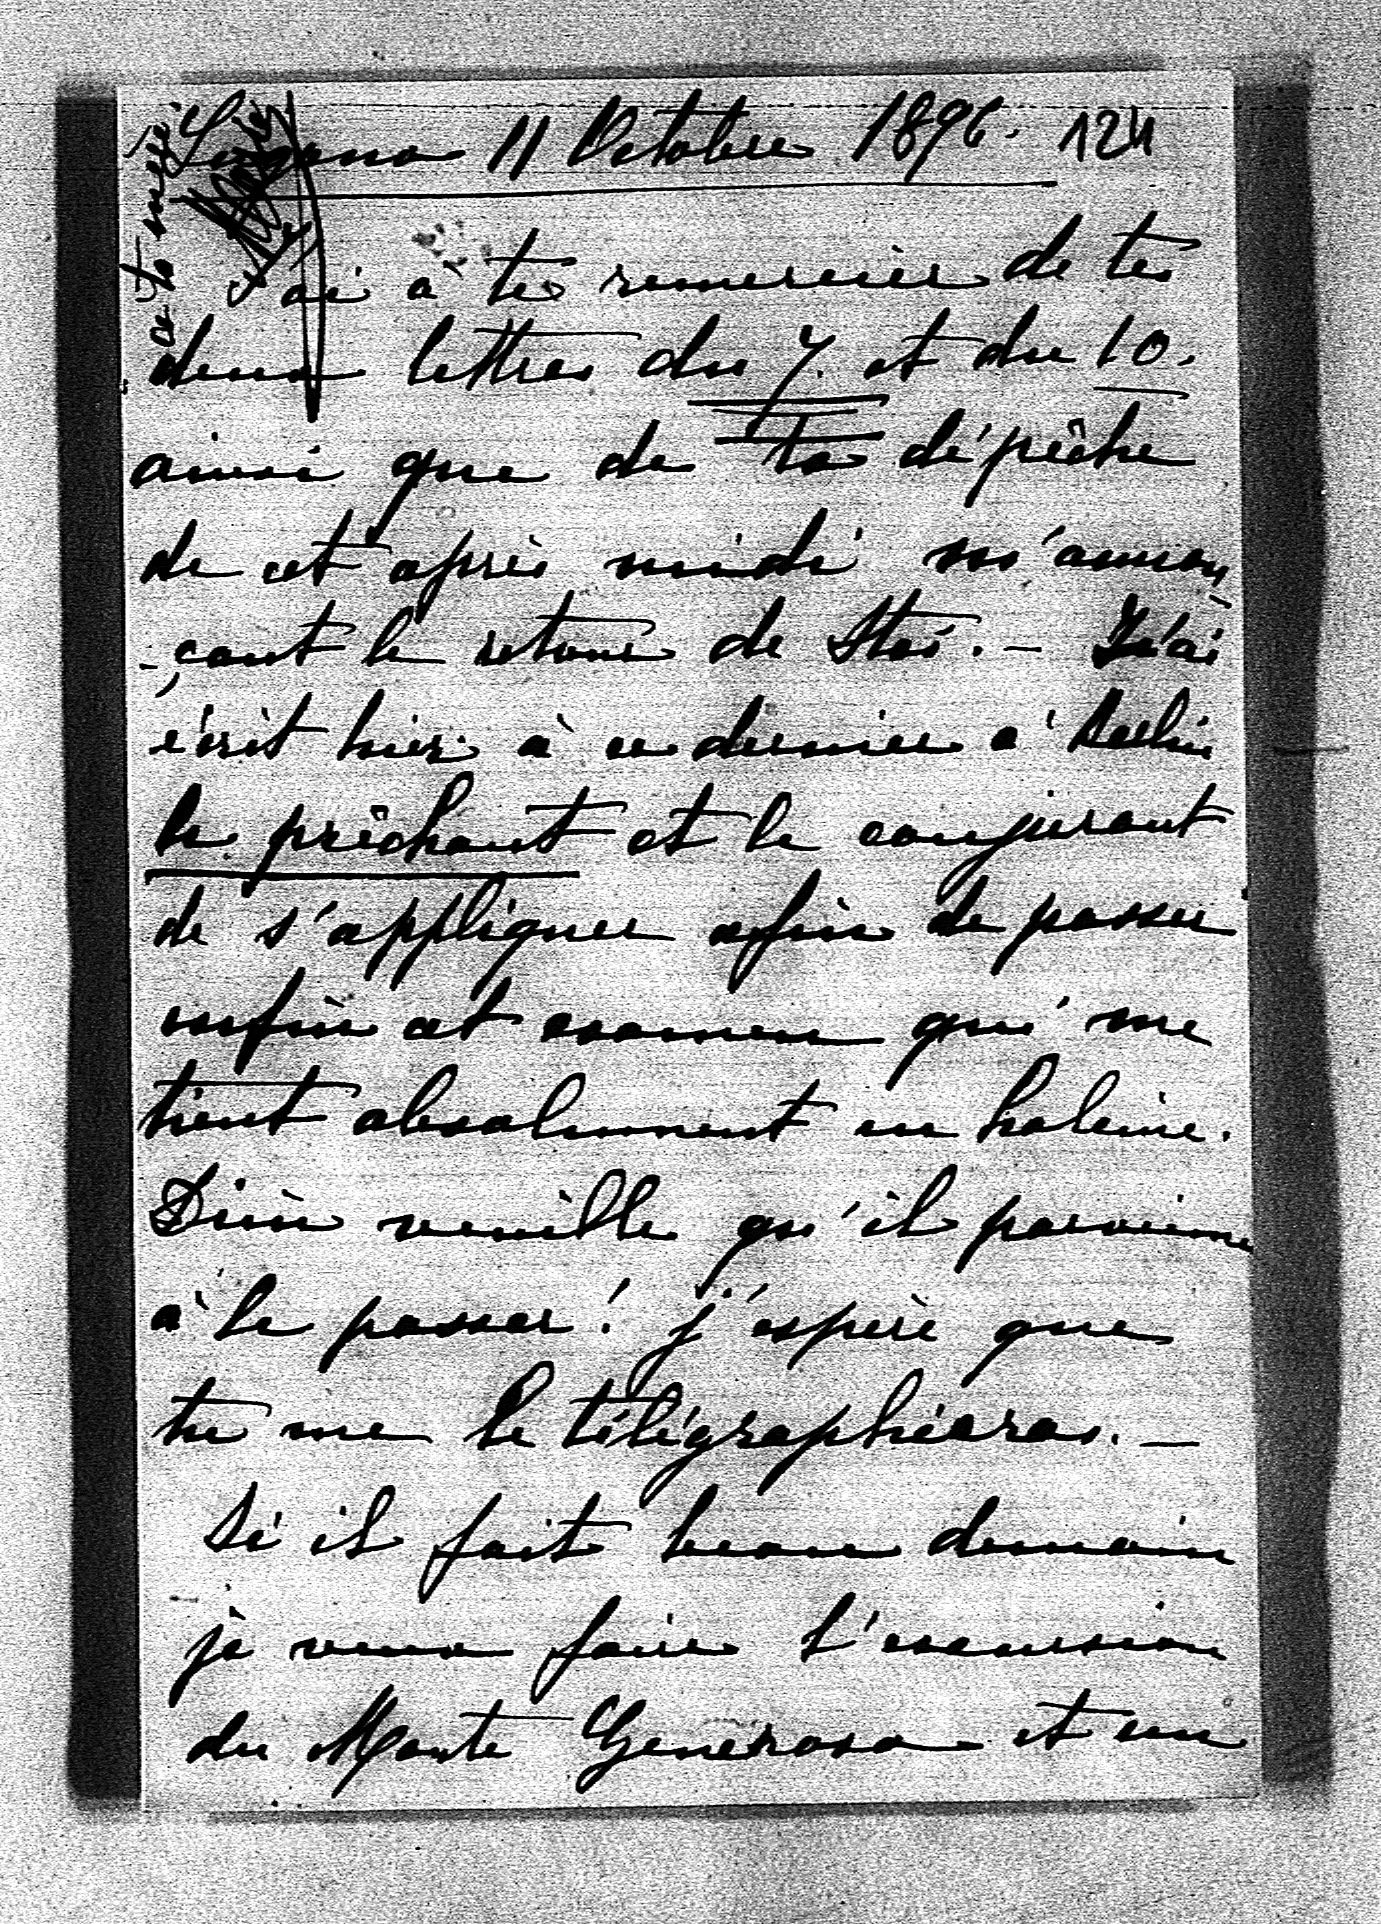 Lugano 11 Octobre 1896. 124
J'ai à te remercier de tes
deux lettres du 7. et du 10.
ainsi que de ta dépêche
de cet après midi m'annon
-çant le retour de Stoï. – J'ai
écrit hier à ce dernier à Berlin
le prêchant et le conjurant
de s'appliquer afin de passer
enfin cet examen qui me
tient absolument en haleine.
Dieu veuille qu'il parvienne
à le passer! j'espère que
tu me le télégraphieras. –
Si il fait beau demain
je veux faire l'excursion
du Monte Generoso et un